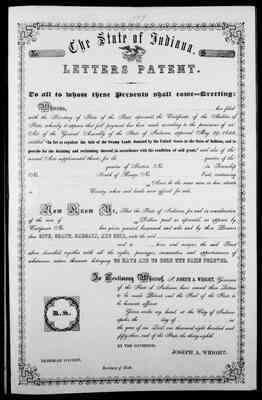 The State of Indiana.
LETTERS PATENT.
To all to whom these Presents shall come—Greeting:
Whereas, has filed
with the Secretary of State of the State aforesaid the Certificate of the Auditor of
State, whereby it appears that full payment has been made according to the provisions of an
Act of the General Assembly of the State of Indiana, approved May 29, 1852,
entitled "An Act to regulate the Sale of the Swamp Lands donated by the United States to the State of Indiana, and to
provide for the draining and reclaiming thereof in accordance with the condition of said grant," and also of the
several Acts supplemental thereto, for the quarter of the
quarter of Section No. in Township
No. North of Range No. East, containing
Acres be the same more or less, situate
in County, when said lands were offered for sale.
Now Know Ye, That the State of Indiana, for and in consideration
of the sum of Dollars, paid as aforesaid, as appears by
Certificate No. has given, granted, bargained and sold, and by these Presents
does GIVE, GRANT, BARGAIN, AND SELL, unto the said
and to heirs and assigns, the said Tract
above described, together with all the rights, privileges, immunities, and appurtenances of
whatsoever nature thereunto belonging, TO HAVE AND TO HOLD THE SAME FOREVER.
In Testimony Whereof, I, JOSEPH A. WRIGHT, Governor
of the State of Indiana, have caused these Letters
to be made Patent, and the Seal of the State to
be hereunto affixed.
Given under my hand, at the City of Indianapolis, the day of in
the year of our Lord one thousand eight hundred and
fifty- and of the State the thirty-eighth.
BY THE GOVERNOR:
JOSEPH A. WRIGHT.
Secretary of State.